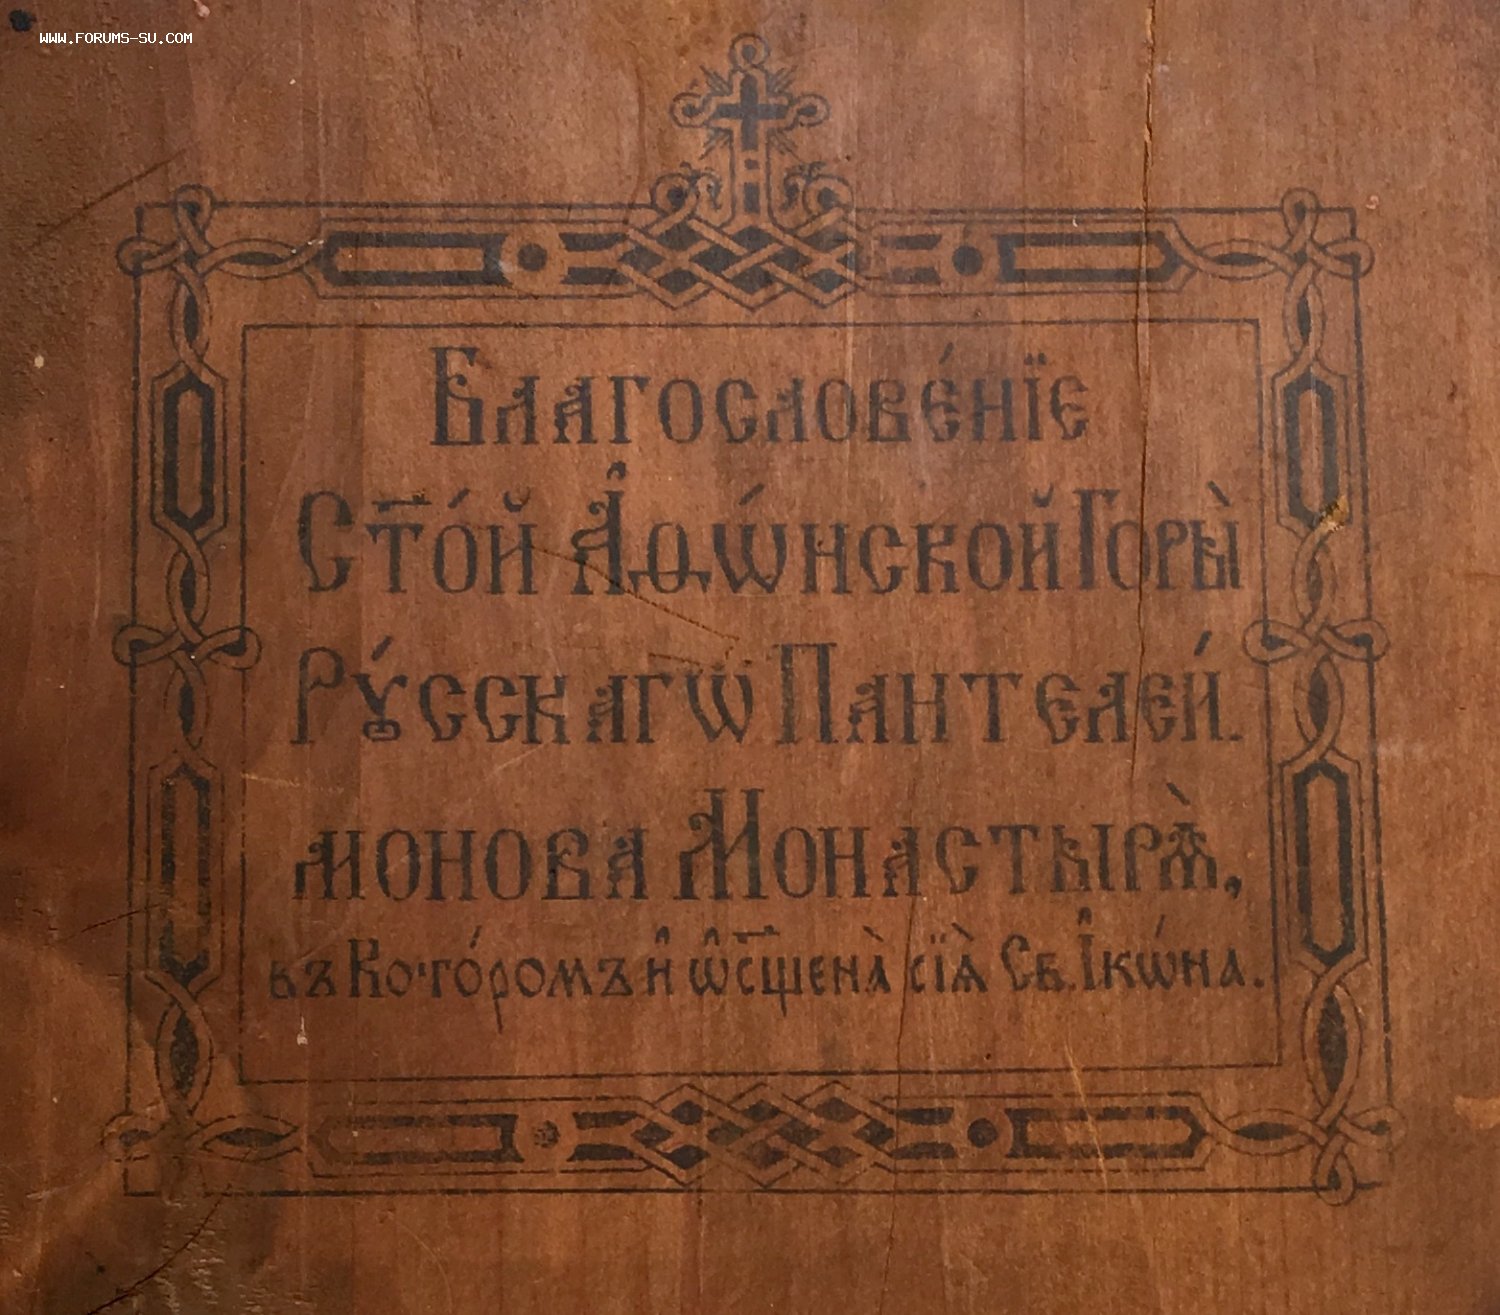 WWW.FORUMS-SU.COM
Благослове́нїе
Ст҃о́й А҆ѳѡ́нской Горы̀
Рꙋ́сскагѡ Пантелеи́.
монова Монастырѧ̀,
въ Кото́ромъ и҆ ѡ҆сщ҃ена̀ сїѧ̀ Св. І҆кѡ́на.